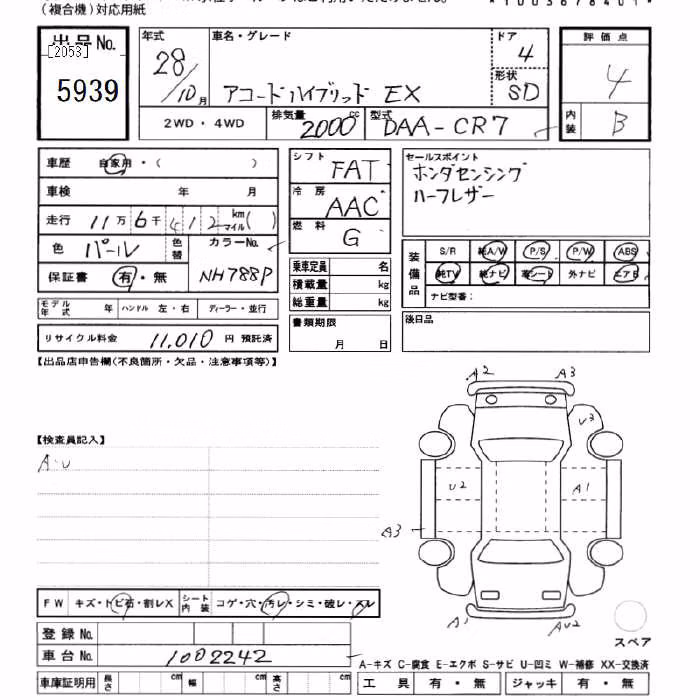 (複合機)対応用紙
出品No.
[2053]
5939
年式
28/10月
車名・グレード
アコードハイブリッド EX
ドア
4
形状
SD
評価点
4
内装
B
2WD・4WD
排気量
2000cc
型式
DAA-CR7
車歴 自家用・( )
車検 年 月
走行 11万6千412 km マイル( )
色 パール
色替
カラーNo.
NH788P
保証書 有・無
モデル年式 年 ハンドル 左・右 ディーラー・並行
リサイクル料金 11,010 円 預託済
シフト FAT
冷房 AAC
燃料 G
乗車定員 名
積載量 kg
総重量 kg
書類期限
月 日
セールスポイント
ホンダセンシング
ハーフレザー
装備品
S/R 純A/W P/S P/W ABS
純TV 純ナビ 革シート 外ナビ エアB
ナビ型番:
後日品
【出品店申告欄(不良箇所・欠品・注意事項等)】
【検査員記入】
A・U
A2 A3
U3
U2 A1
A3
A1 AU2
スペア
FW キズ・トビ石・割レX シート内装 コゲ・穴・汚レ・シミ・破レ・スレ
登録No.
車台No. 1002242
A-キズ C-腐食 E-エクボ S-サビ U-凹ミ W-補修 XX-交換済
車庫証明用 長さ cm 幅 cm 高さ cm
工具 有・無 ジャッキ 有・無